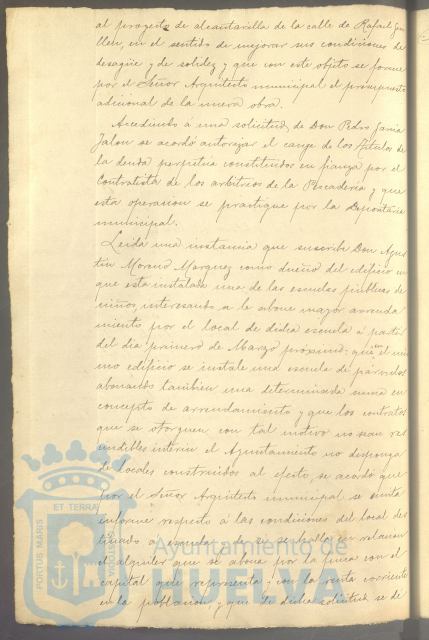 al proyecto de alcantarilla de la calle de Rafael Gui
llen, en el sentido de mejorar sus condiciones de
desagüe y de solidez y que con este objeto se forme
por el Señor Arquitecto municipal el presupuesto
adicional de la nueva obra.
Accediendo á una solicitud de Don Pedro Garcia
Jalon se acordó autorizar el cange de los títulos de
la deuda perpétua constituidos en fianza por el
Contratista de los arbitrios de la Pescaderia y que
esta operacion se practique por la Depositaria
municipal.
Leida una instancia que suscribe Don Agus
tin Moreno Marquez como dueño del edificio en
que esta instalada una de las escuelas públicas de
niños, interesando se le abone mayor arrenda
miento por el local de dicha escuela á partir
del dia primero de Marzo próximo; que en el mis
mo edificio se instale una escuela de párvulos
abonando tambien una determinada suma en
concepto de arrendamiento y que los contratos
que se otorguen con tal motivo no sean res
cindibles interin el Ayuntamiento no disponga
de locales construidos al efecto, se acordó que
por el Señor Arquitecto municipal se emita
informe respecto á las condiciones del local des
tinado á escuela y de si se halla en relacion
el alquiler que se abona por la finca con el
capital que representa y con la renta corriente
en la poblacion; y que de dicha solicitud se dé
PORTUS MARIS
ET TERRAE
Ayuntamiento de
HUELVA